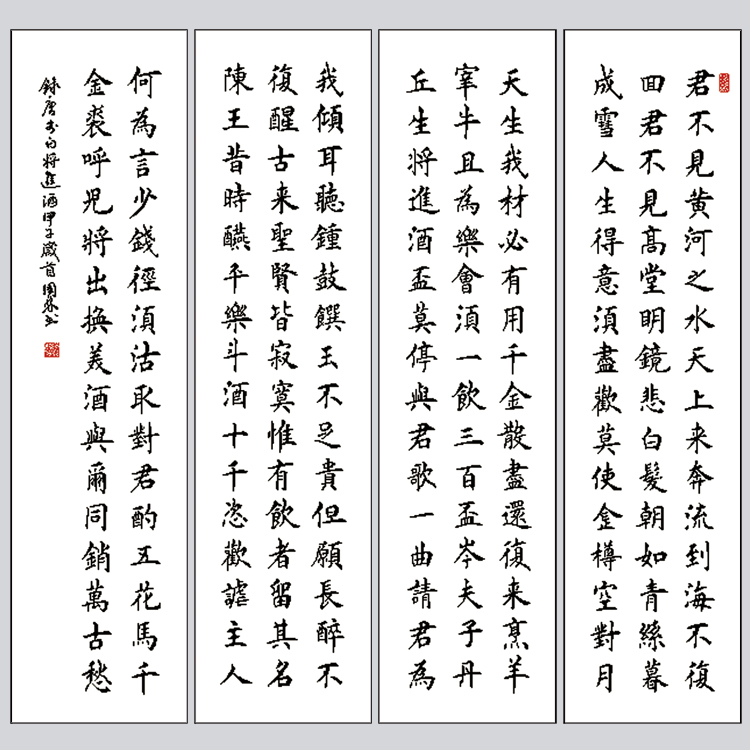 君不見黄河之水天上来奔流到海不復
回君不見高堂明鏡悲白髮朝如青絲暮
成雪人生得意須盡歡莫使金樽空對月
天生我材必有用千金散盡還復来烹羊
宰牛且為樂會須一飲三百盃岑夫子丹
丘生將進酒盃莫停與君歌一曲請君為
我傾耳聽鍾鼓饌玉不足貴但願長醉不
復醒古来聖賢皆寂寞惟有飲者留其名
陳王昔時醼平樂斗酒十千恣歡謔主人
何為言少錢徑須沽取對君酌五花馬千
金裘呼兒將出換美酒與爾同銷萬古愁
録唐李白將進酒甲子歲首